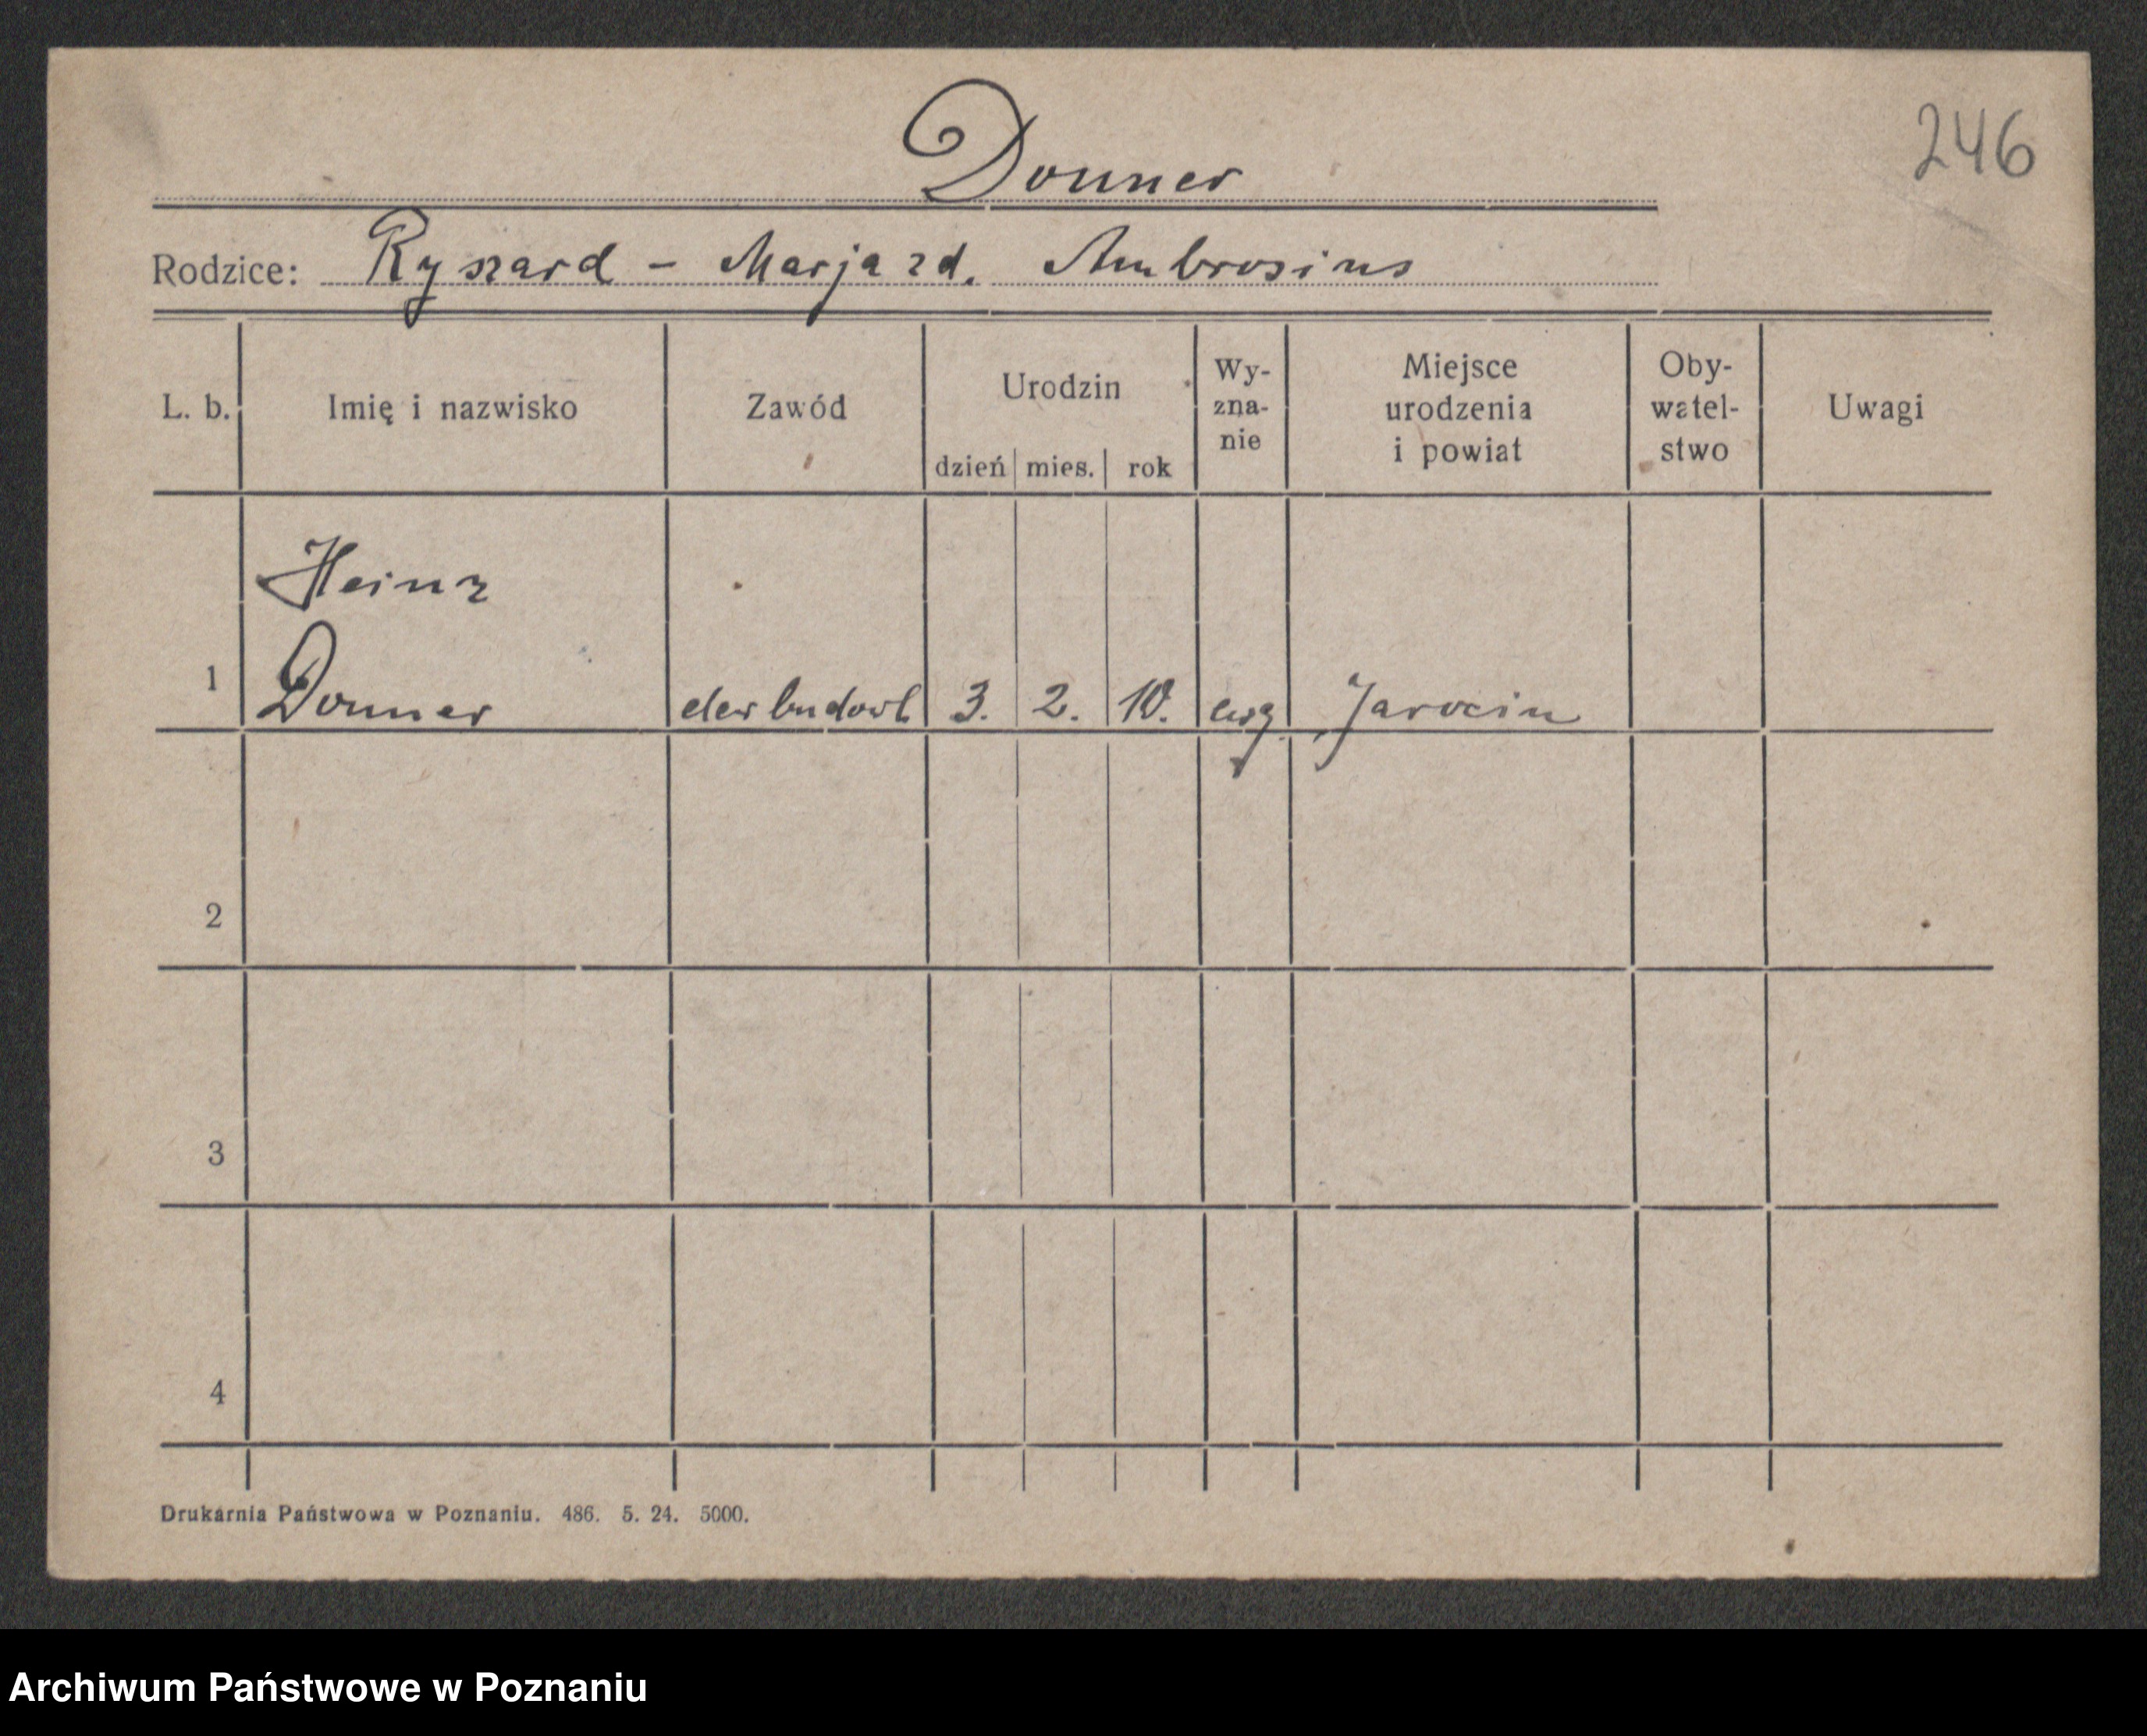 246
Donner
Rodzice: Ryszard - Marja zd. Ambrosius
L. b. Imię i nazwisko Zawód Urodzin dzień mies. rok Wy-zna-nie Miejsce urodzenia i powiat Oby-watel-stwo Uwagi
Heinz
1 Donner elew budowl 3. 2. 10. ewg. Jarocin
2
3
4
Drukarnia Państwowa w Poznaniu. 486. 5. 24. 5000.
Archiwum Państwowe w Poznaniu